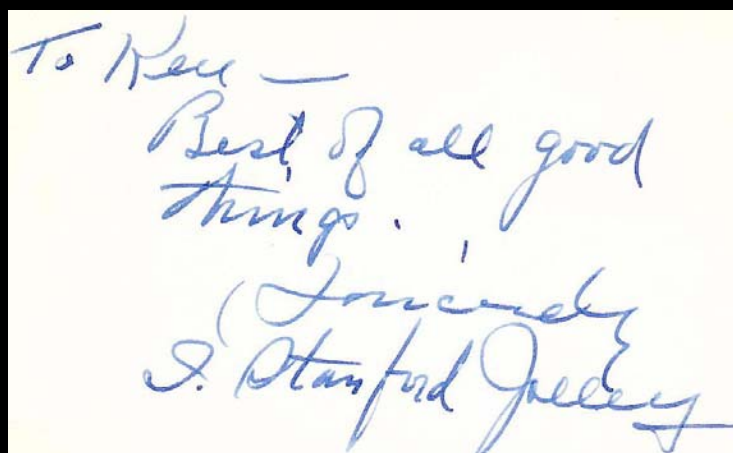 To Ken —
Best of all good
things.
Sincerely
I. Stanford Jolley